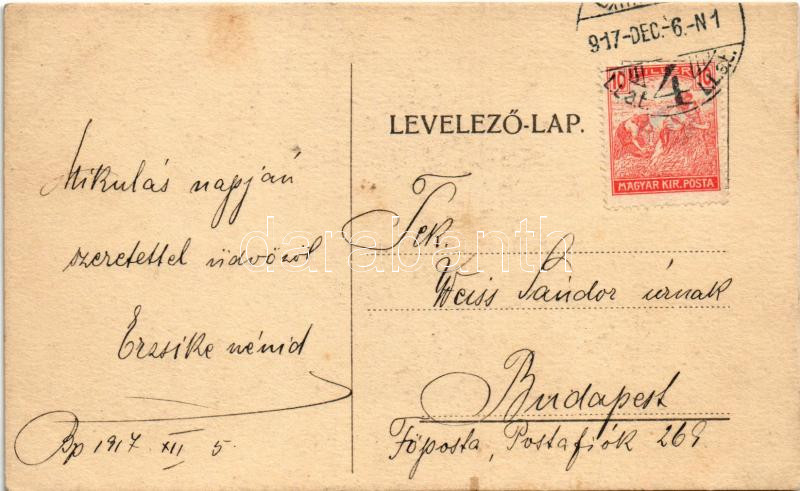 Mikulás napján
szeretettel üdvözöl
Erzsike nénid
Bp 1917 XII 5.
917-DEC.-6.-N1
4
10 FILLÉR 10
MAGYAR KIR. POSTA
LEVELEZŐ-LAP.
Tek.
Weiss Sándor úrnak
Budapest
Főposta, Postafiók 269
darabanth